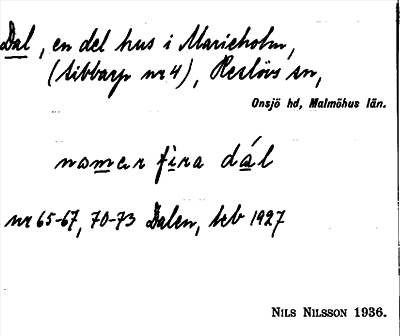 Dal, en del hus i Marieholm,
(Sibbarp nr 4), Reslövs sn,
Onsjö hd, Malmöhus län.
nomer fira dál
nr 65-67, 70-73 Dalen, teb 1927
NILS NILSSON 1936.